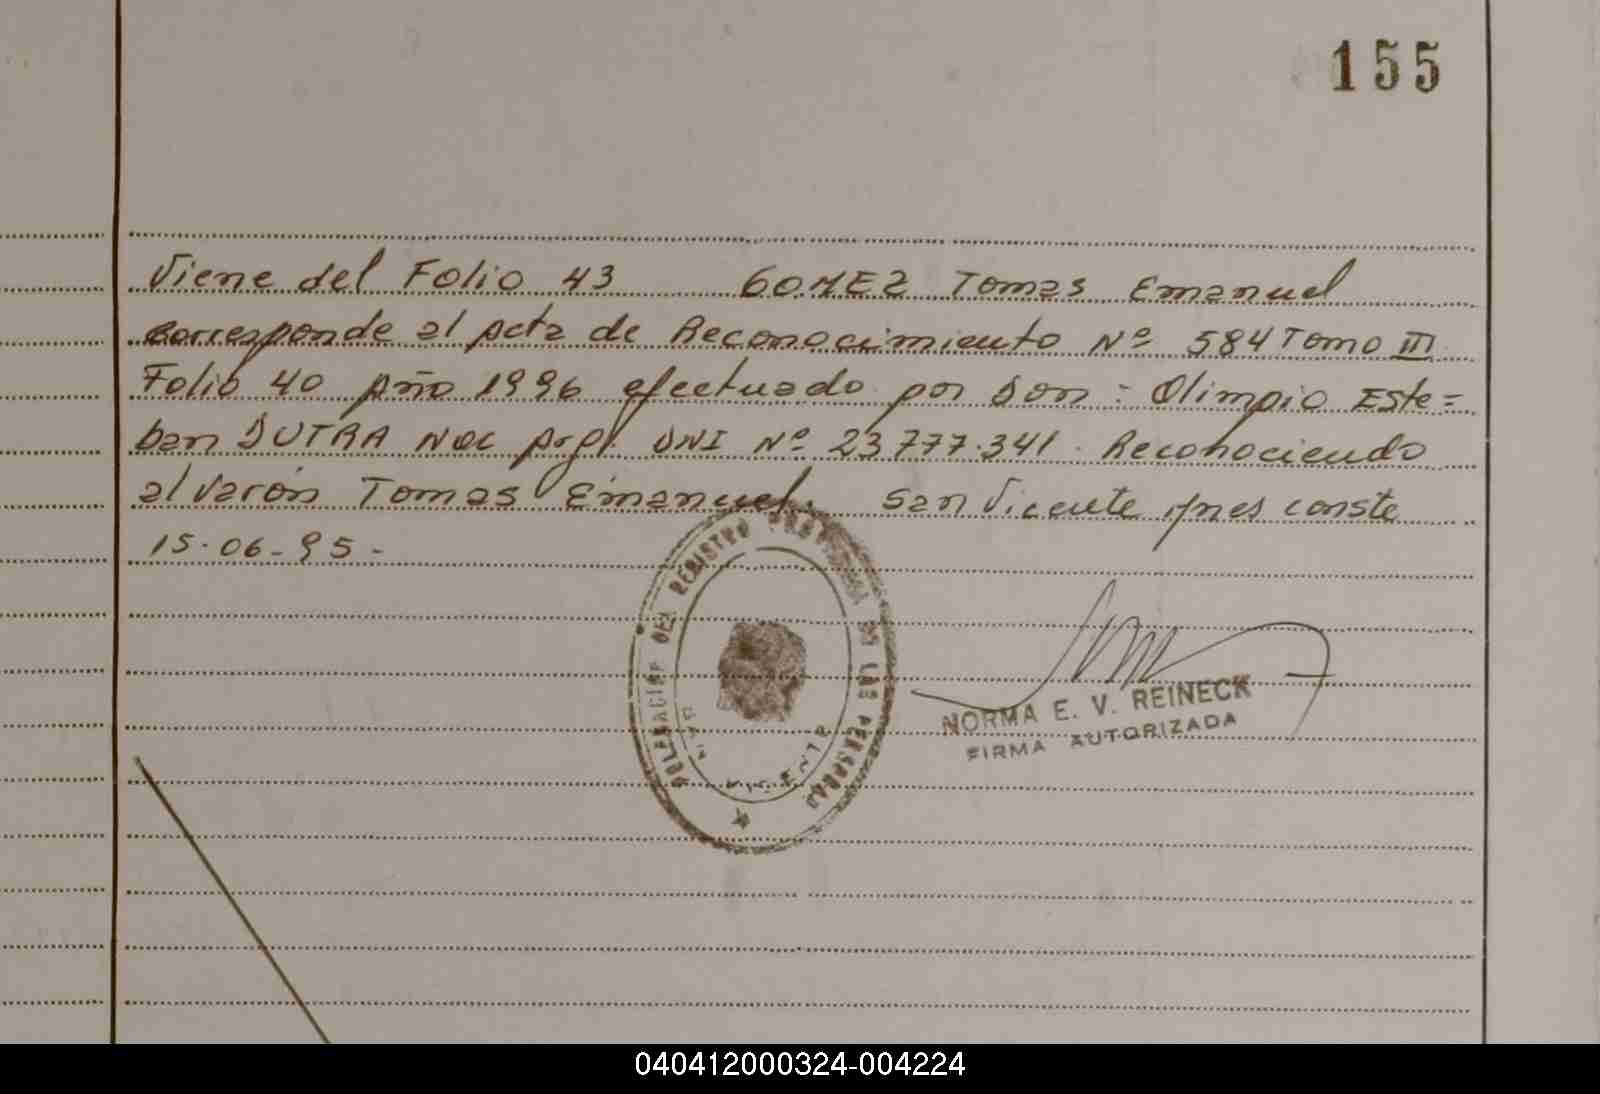 155
Viene del Folio 43 GOMEZ Tomas Emanuel
corresponde al Acta de Reconocimiento Nº 584 Tomo III
Folio 40 Año 1996 efectuado por Don : Olimpio Este=
ban DUTRA Nac Arg. DNI Nº 23777.341. Reconociendo
al varón Tomas Emanuel. San Vicente Mnes conste
15.06-95-
DELEGACION DEL REGISTRO PROVINCIAL DE LAS PERSONAS
SAN VICENTE
NORMA E. V. REINECK
FIRMA AUTORIZADA
040412000324-004224